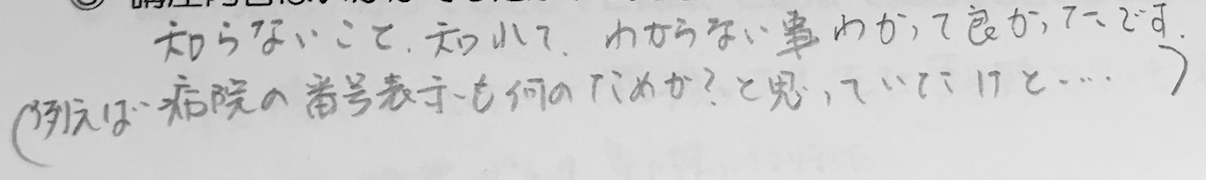 知らないこと、知れて、わからない事わかって良かったです。
(例えば病院の番号表示も何のためか?と思っていたけど‥‥)